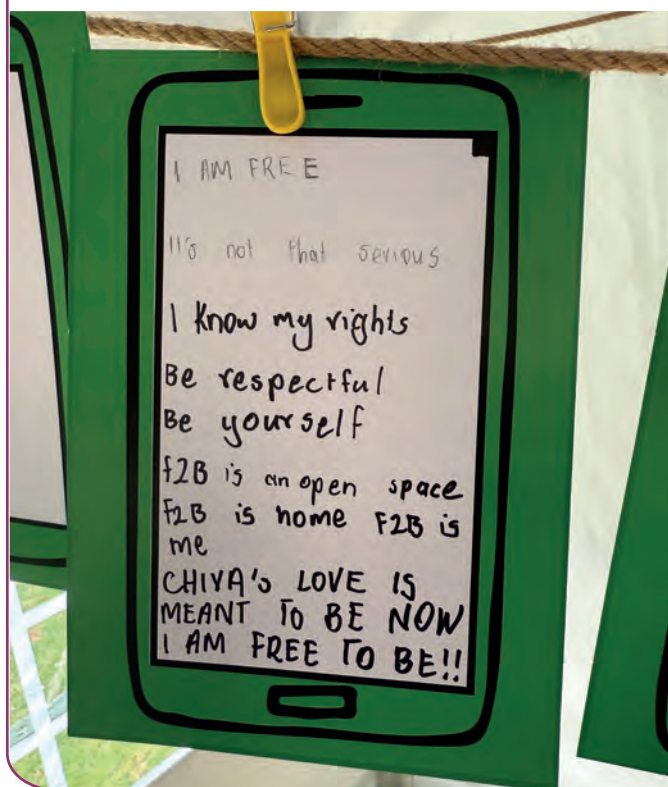 I AM FREE
It's not that serious
I know my rights
Be respectful
Be yourself
f2B is an open space
F2B is home F2B is
me
CHIVA's LOVE IS
MEANT TO BE NOW
I AM FREE TO BE!!